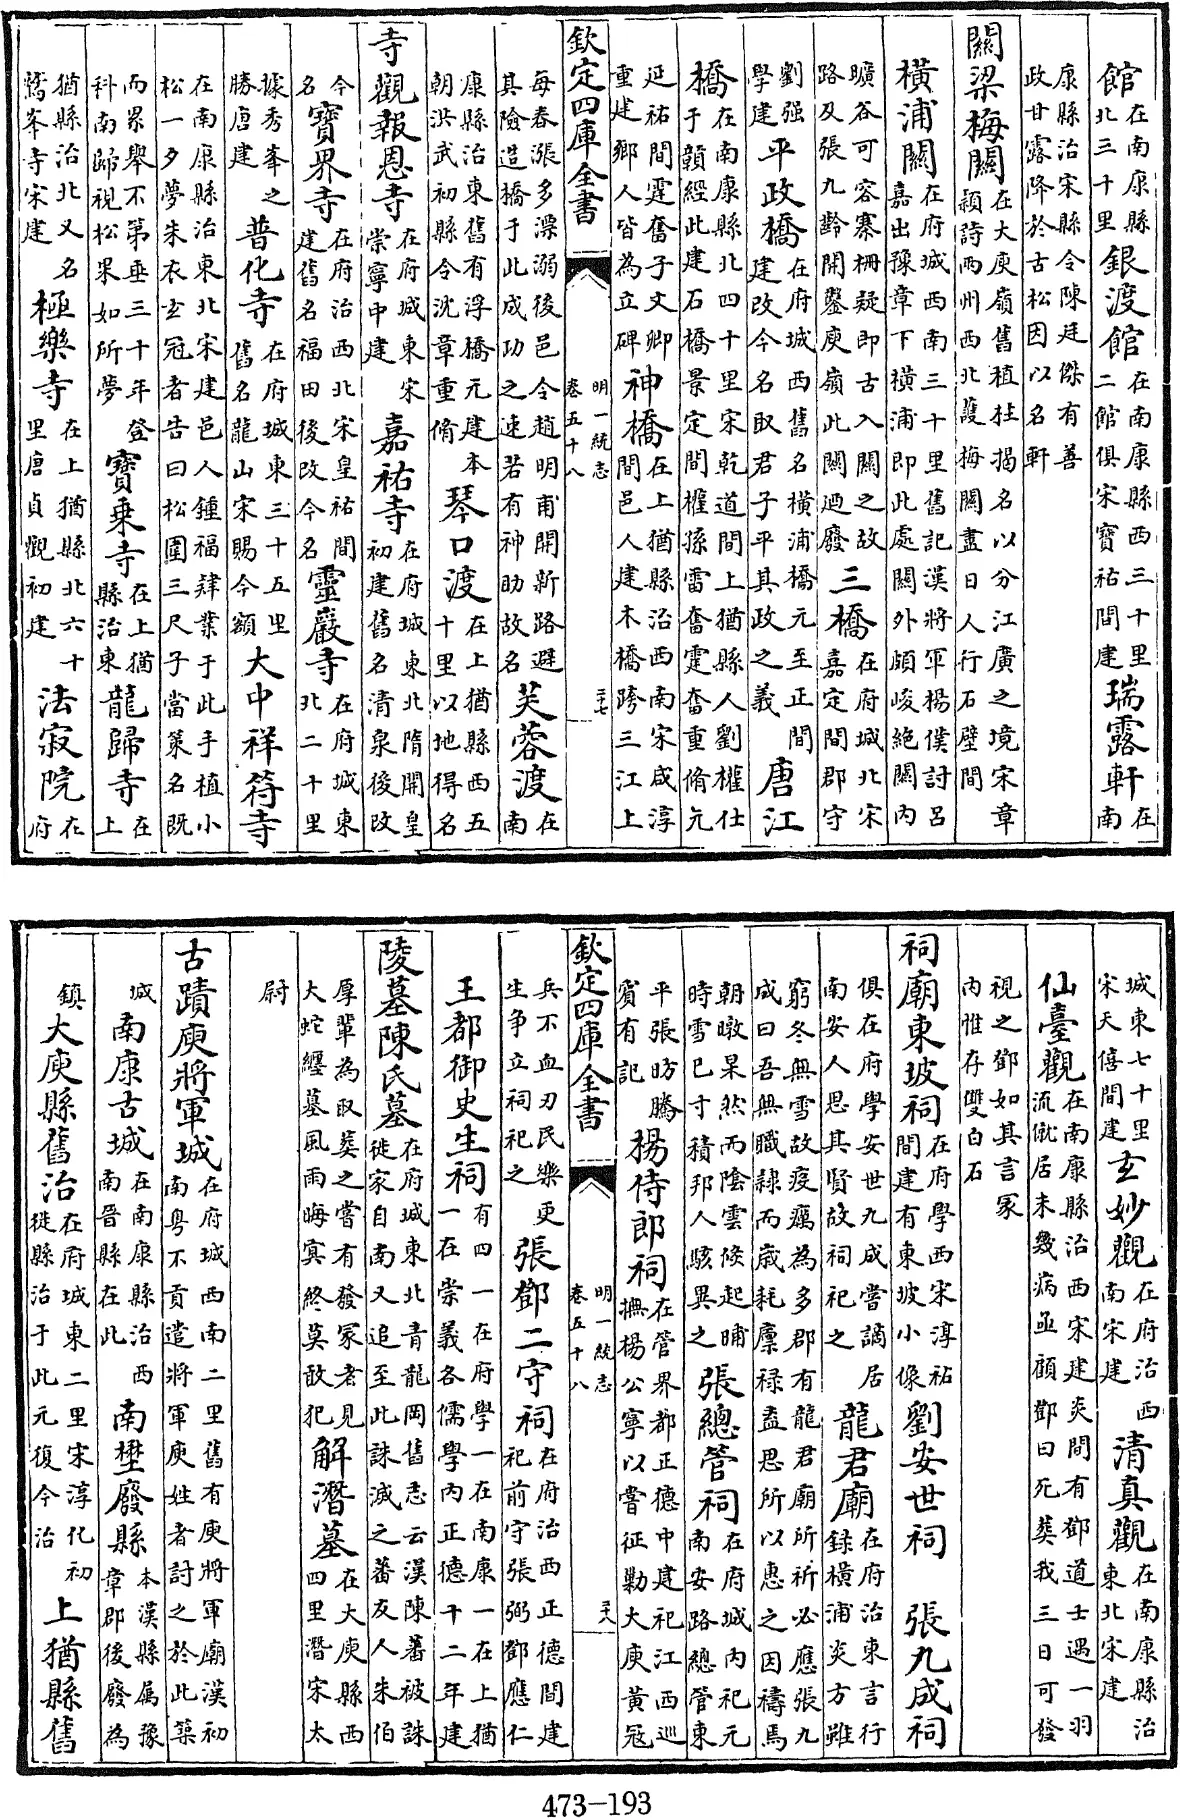 館在南康縣北三十里銀渡館在南康縣西三十里二館俱宋寶祐間建瑞露軒在南
康縣治宋縣令陳廷傑有善政甘露降於古松因以名軒
關梁梅關在大庾嶺舊植柱揭名以分江廣之境宋章頴詩兩州西北護梅關盡日人行石壁間
橫浦關在府城西南三十里舊記漢將軍楊僕討呂嘉出豫章下橫浦即此處關外頗峻絶關内
曠谷可容寨柵疑即古入關之故路及張九齡開鑿庾嶺此關廼廢三橋在府城北宋嘉定間郡守
劉强學建平政橋在府城西舊名橫浦橋元至正間建改今名取君子平其政之義唐江
橋在南康縣北四十里宋乾道間上猶縣人劉權仕于贛經此建石橋景定間權孫雷奮霆奮重脩元
延祐間霆奮子文卿重建鄉人皆為立碑神橋在上猶縣治西南宋咸淳間邑人建木橋跨三江上
欽定四庫全書 明一統志卷五十八 三七
每春漲多漂溺後邑令趙明甫開新路避其險造橋于此成功之速若有神助故名芙蓉渡在南
康縣治東舊有浮橋元建本朝洪武初縣令沈章重脩琴口渡在上猶縣西五十里以地得名
寺觀報恩寺在府城東宋崇寧中建嘉祐寺在府城東北隋開皇初建舊名清泉後改
今名寶界寺在府治西北宋皇祐間建舊名福田後改今名靈巖寺在府城東北二十里
據秀峯之勝唐建普化寺在府城東三十五里舊名龍山宋賜今額大中祥符寺
在南康縣治東北宋建邑人鍾福肄業于此手植小松一夕夢朱衣玄冠者告曰松圍三尺子當策名既
而累舉不第垂三十年登科南歸視松果如所夢寶乗寺在上猶縣治東龍歸寺在上
猶縣治北又名鷲峯寺宋建極樂寺在上猶縣北六十里唐貞觀初建法寂院在府
城東七十里宋天僖間建玄妙觀在府治西南宋建清真觀在南康縣治東北宋建
仙臺觀在南康縣治西宋建炎間有鄧道士遇一羽流僦居未幾病亟顧鄧曰死葬我三日可發
視之鄧如其言冢内惟存雙白石
祠廟東坡祠在府學西宋淳祐間建有東坡小像劉安世祠 張九成祠
俱在府學安世九成嘗謫居南安人思其賢故祠祀之龍君廟在府治東言行録橫浦炎方雖
窮冬無雪故疫癘為多郡有龍君廟所祈必應張九成曰吾無職隸而歲耗廩祿盍思所以惠之因禱焉
朝暾杲然而陰雲倐起晡時雪已寸積邦人駭異之張總管祠在府城内祀元南安路總管東
平張昉騰賓有記楊侍郎祠在管界都正德中建祀江西巡撫楊公寧以嘗征勦大庾黄冦
欽定四庫全書 明一統志卷五十八 三八
兵不血刃民樂更生争立祠祀之張鄧二守祠在府治西正德間建祀前守張弼鄧應仁
王都御史生祠有四一在府學一在南康一在上猶一在崇義各儒學内正德十二年建
陵墓陳氏墓在府城東北青龍岡舊志云漢陳蕃被誅徙家自南又追至此誅滅之蕃友人朱伯
厚輩為取葬之嘗有發冢者見大蛇纒墓風雨晦㝠終莫敢犯解潛墓在大庾縣西四里潛宋太
尉
古蹟庾將軍城在府城西南二里舊有庾將軍廟漢初南粤不貢遣將軍庾姓者討之於此築
城南康古城在南康縣治西南晉縣在此南壄廢縣本漢縣属豫章郡後廢為
鎮大庾縣舊治在府城東二里宋淳化初徙縣治于此元復今治上猶縣舊
473-193